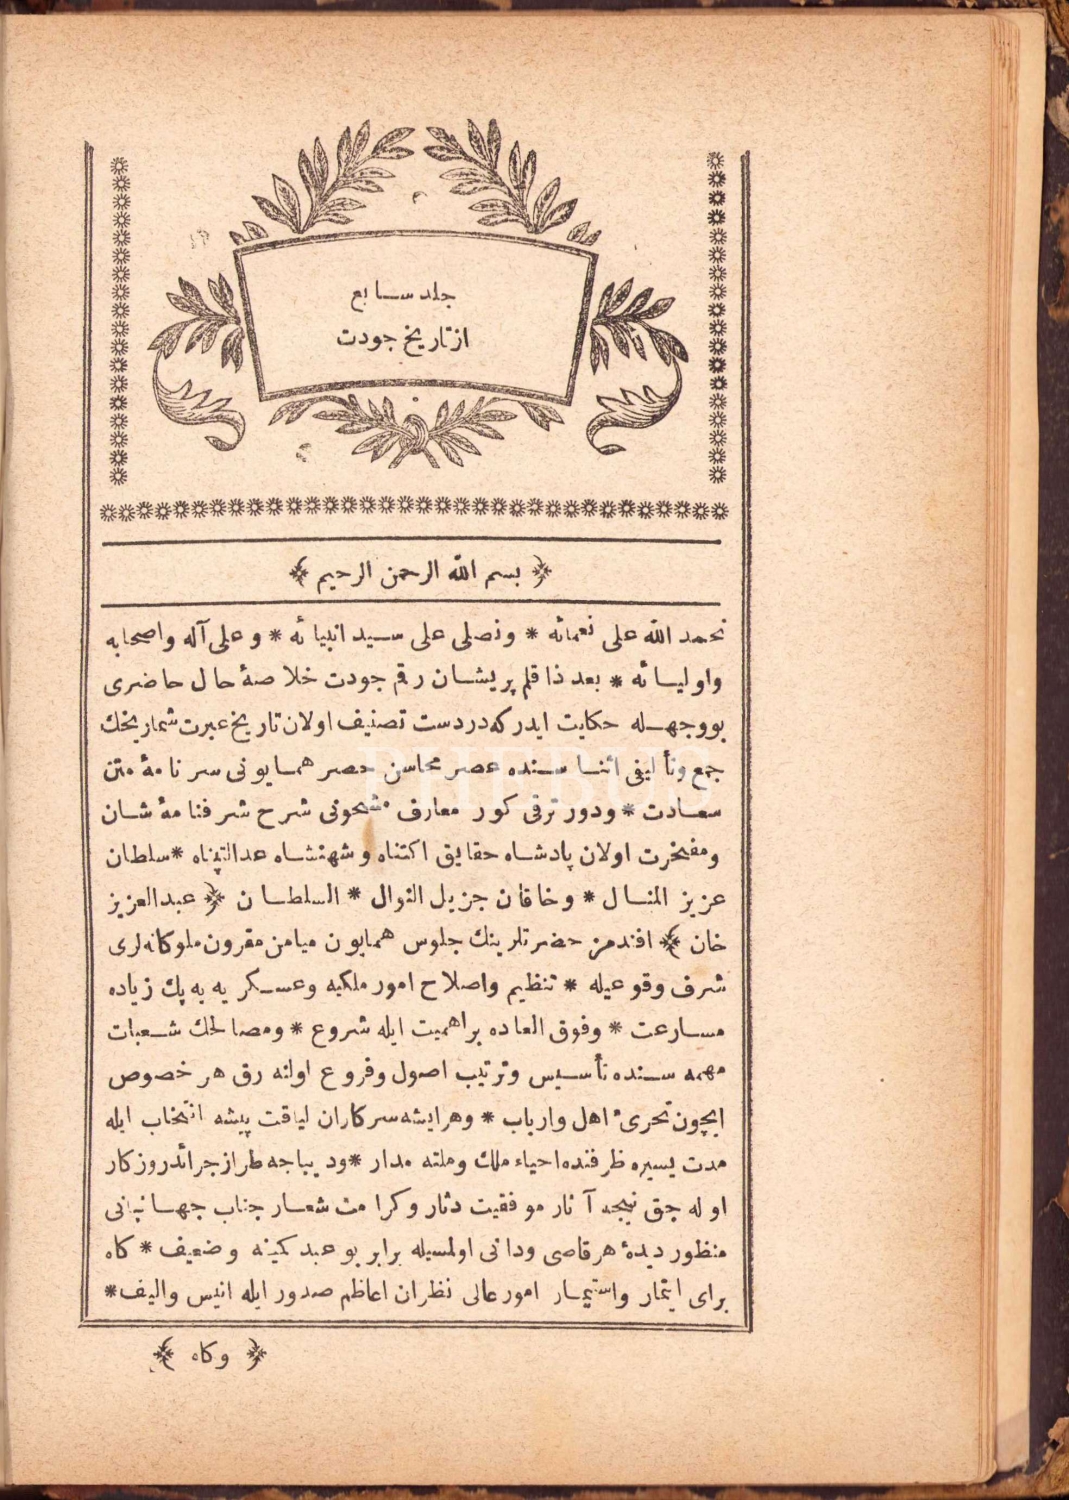 جلد سابع
از تاريخ جودت
﴿ بسم الله الرحمن الرحيم ﴾
نحمد الله على نعمائه * ونصلى على سيد انبيائه * وعلى آله واصحابه
واوليائه * بعد ذا قلم پريشان رقم جودت خلاصهٔ حال حاضرى
بووجهله حكايت ايدركه دردست تصنيف اولان تاريخ عبرت شماريخك
جمع وتأليفى اثنا سنده عصر محاسن حصر همايونى سرنامهٔ متن
سعادت * ودور ترقى كور معارف مشحونى شرح شرفنامهٔ شان
ومفخرت اولان پادشاه حقايق اكتناه وشهنشاه عدالتپناه * سلطان
عزيز المنال * وخاقان جزيل النوال * السلطان ﴿ عبدالعزيز
خان ﴾ افندمز حضرتلرينك جلوس همايون ميامن مقرون ملوكانه لرى
شرف وقوعيله * تنظيم واصلاح امور ملكيه وعسكريه يه پك زياده
مسارعت * وفوق العاده بر اهميت ايله شروع * ومصالحك شعبات
مهمه سنده تأسيس وترتيب اصول وفروع اولنه رق هر خصوص
ايچون تحرىٔ اهل وارباب * وهر ايشه سركاران لياقت پيشه انتخاب ايله
مدت يسيره ظرفنده احياء ملك وملته مدار * وديباجه طراز جرائد روزكار
اوله جق نيجه آثار موفقيت دثار وكرامت شعار جناب جهانبانى
منظور ديدهٔ هر قاصى ودانى اولمسيله برابر بو عبد كمينه وضعيف * كاه
براى ايتمار واستيمار امور عالى نظران اعاظم صدور ايله انيس واليف *
﴿ وكاه ﴾
PHEBUS